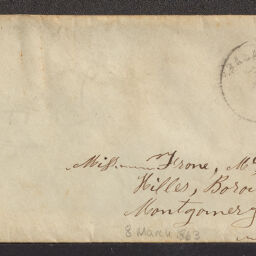 Miss Irone, M
Hilles, Boro
Montgomery
8 March 1863